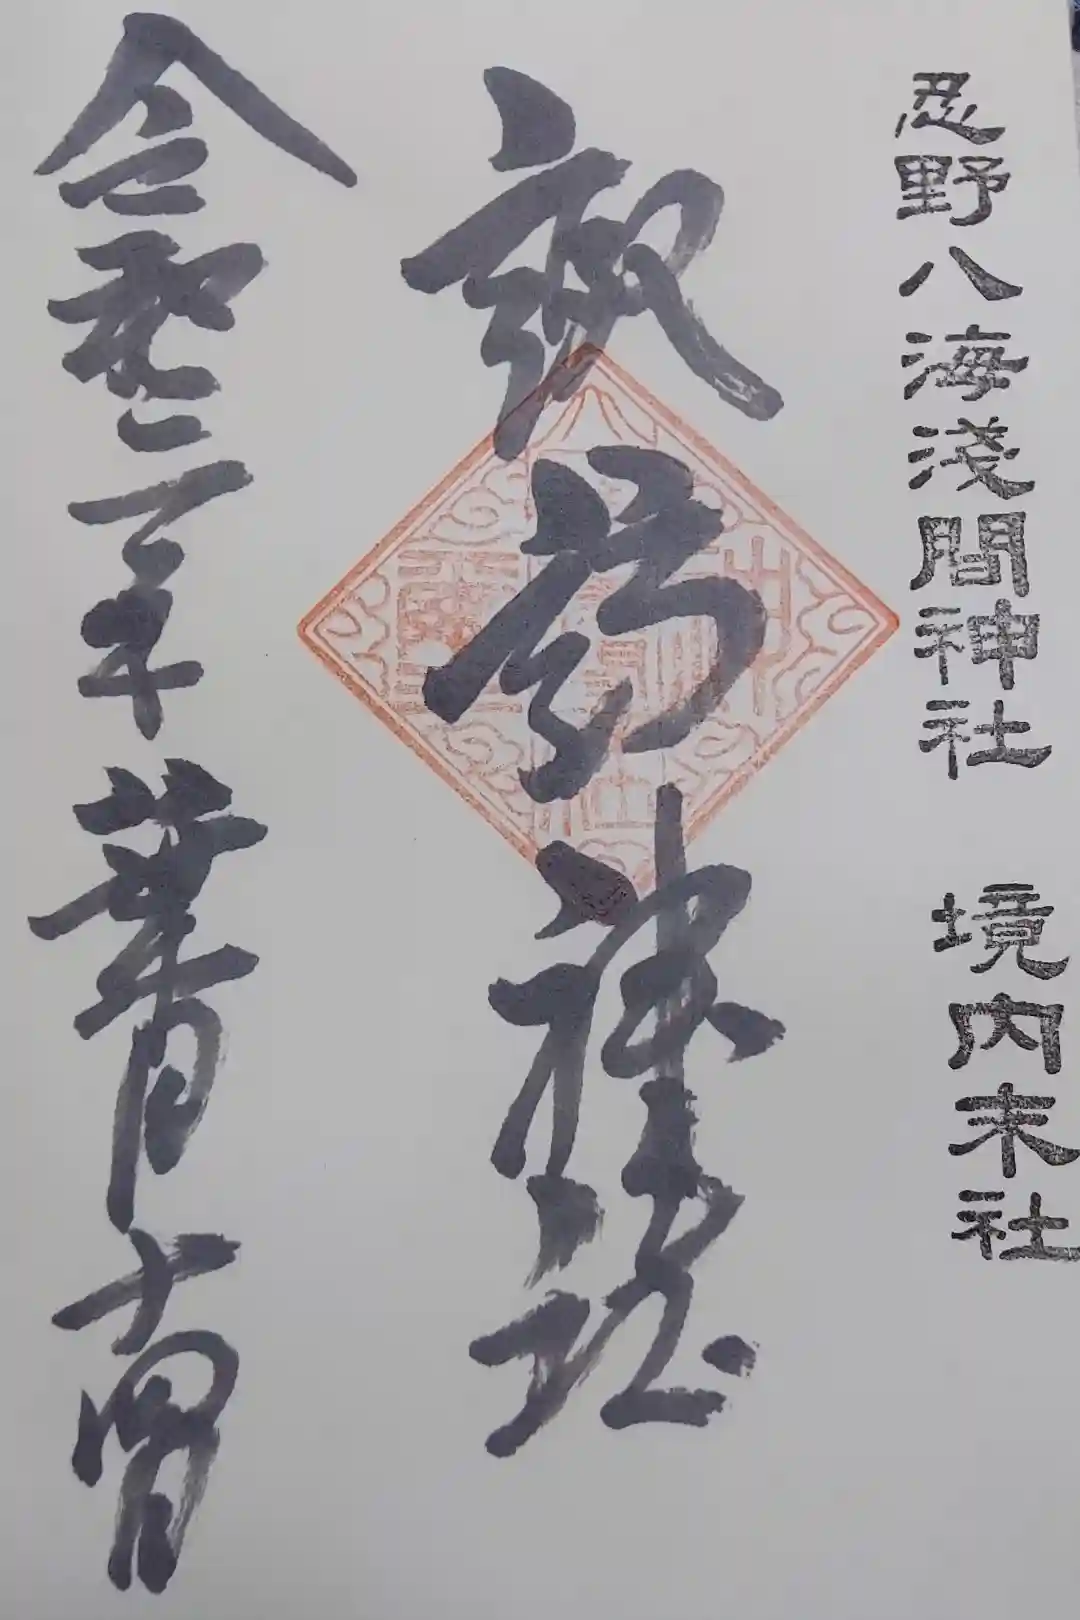 忍野八海淺間神社 境内末社
諏訪神社
令和二年葉月十四日